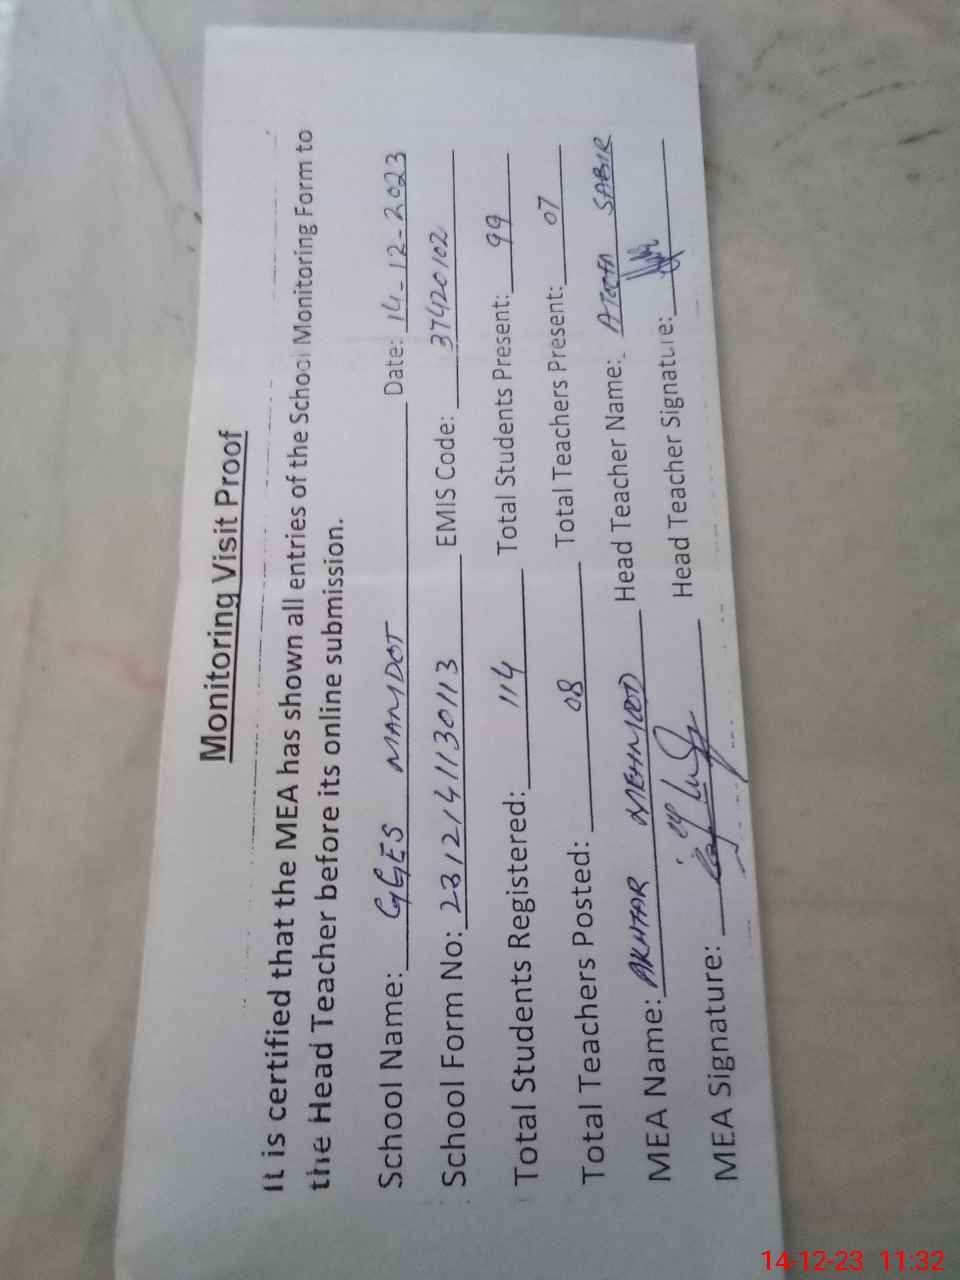 Monitoring Visit Proof
It is certified that the MEA has shown all entries of the School Monitoring Form to
the Head Teacher before its online submission.
School Name: GGES MAMDOT Date: 14-12-2023
School Form No: 2312141130113 EMIS Code: 37420102
Total Students Registered: 114 Total Students Present: 99
Total Teachers Posted: 08 Total Teachers Present: 07
MEA Name: AKHTAR MEHMOOD Head Teacher Name: SABIR
MEA Signature: Head Teacher Signature:
14-12-23 11:32